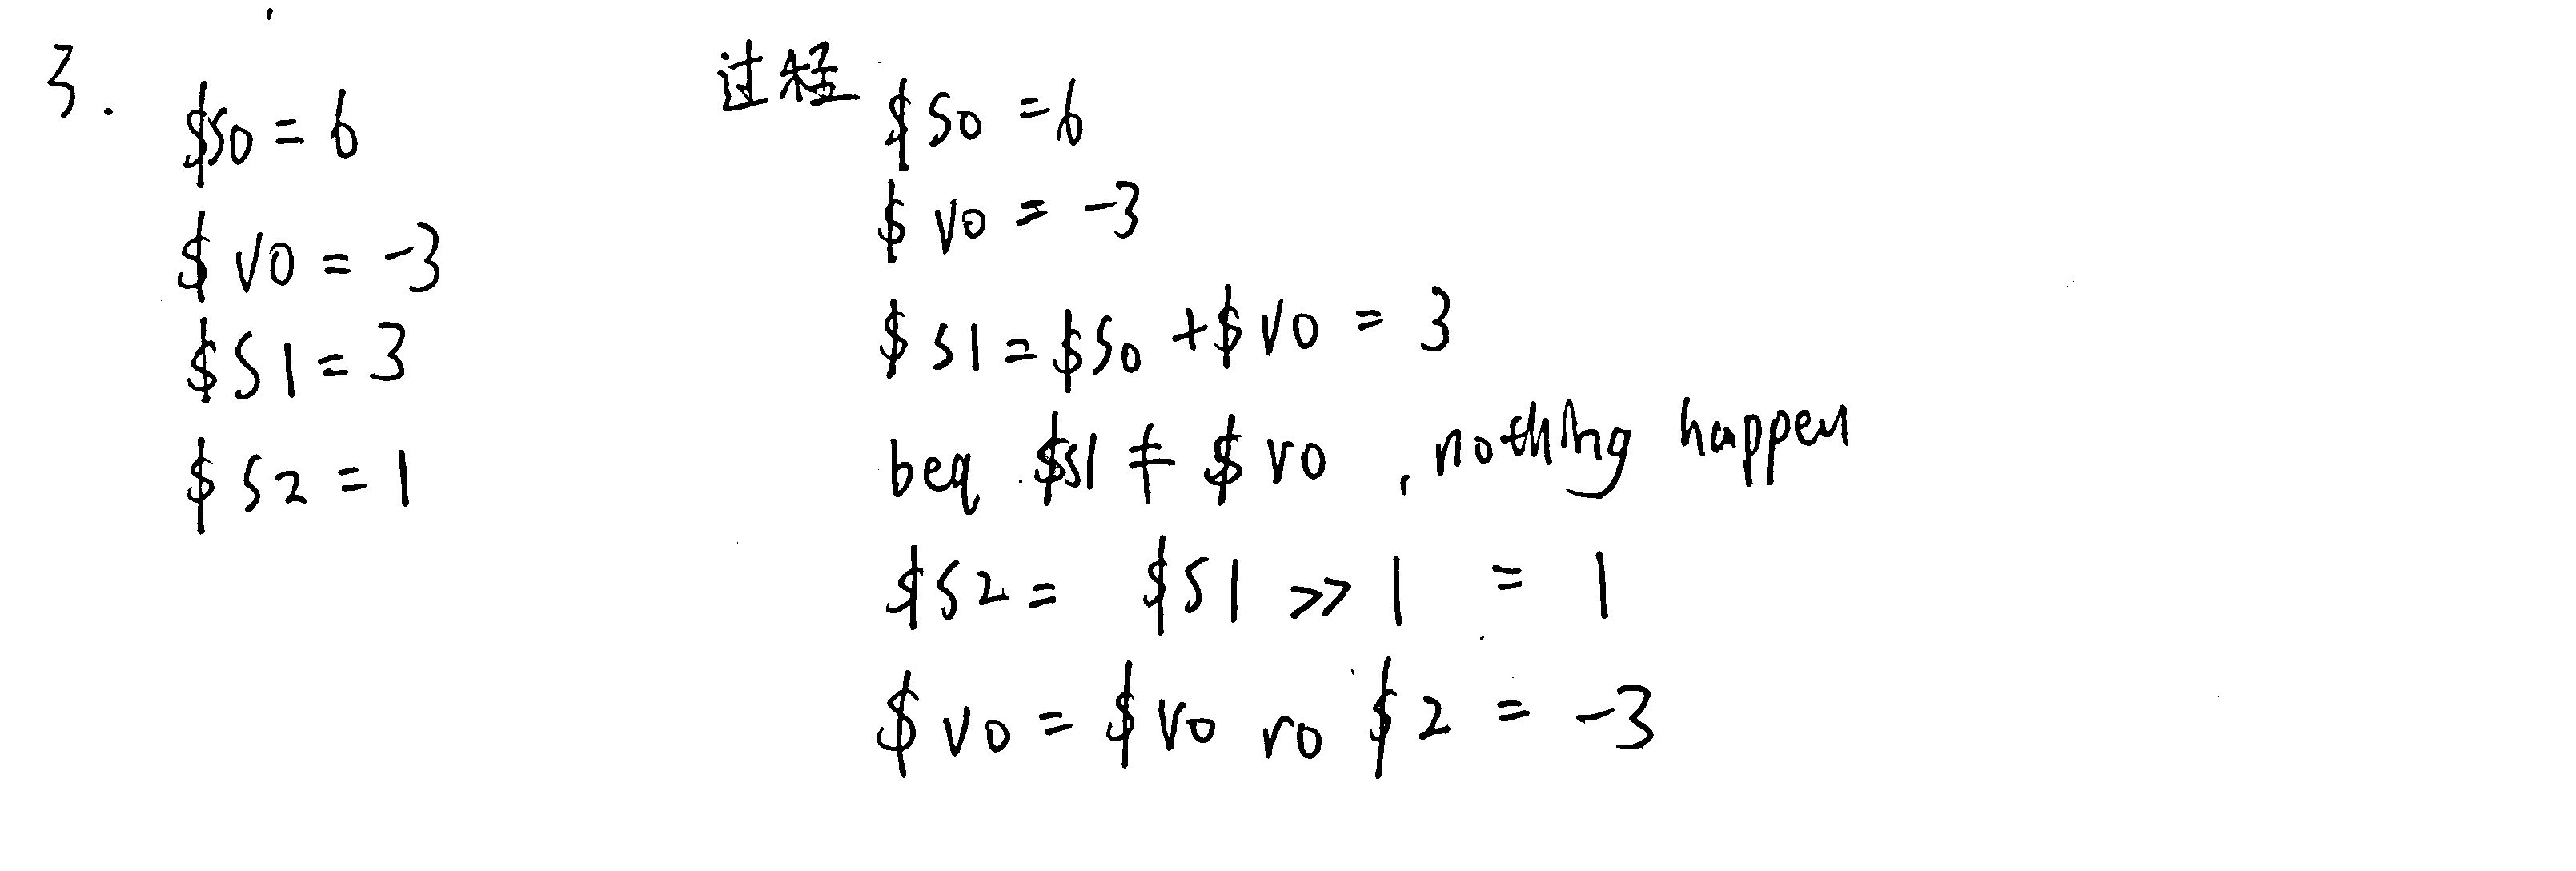 3.
$s0 = 6
$v0 = -3
$s1 = 3
$s2 = 1
过程
$s0 = 6
$v0 = -3
$s1 = $s0 + $v0 = 3
beq $s1 ≠ $v0 , nothing happen
$s2 = $s1 >> 1 = 1
$v0 = $v0 ro $2 = -3